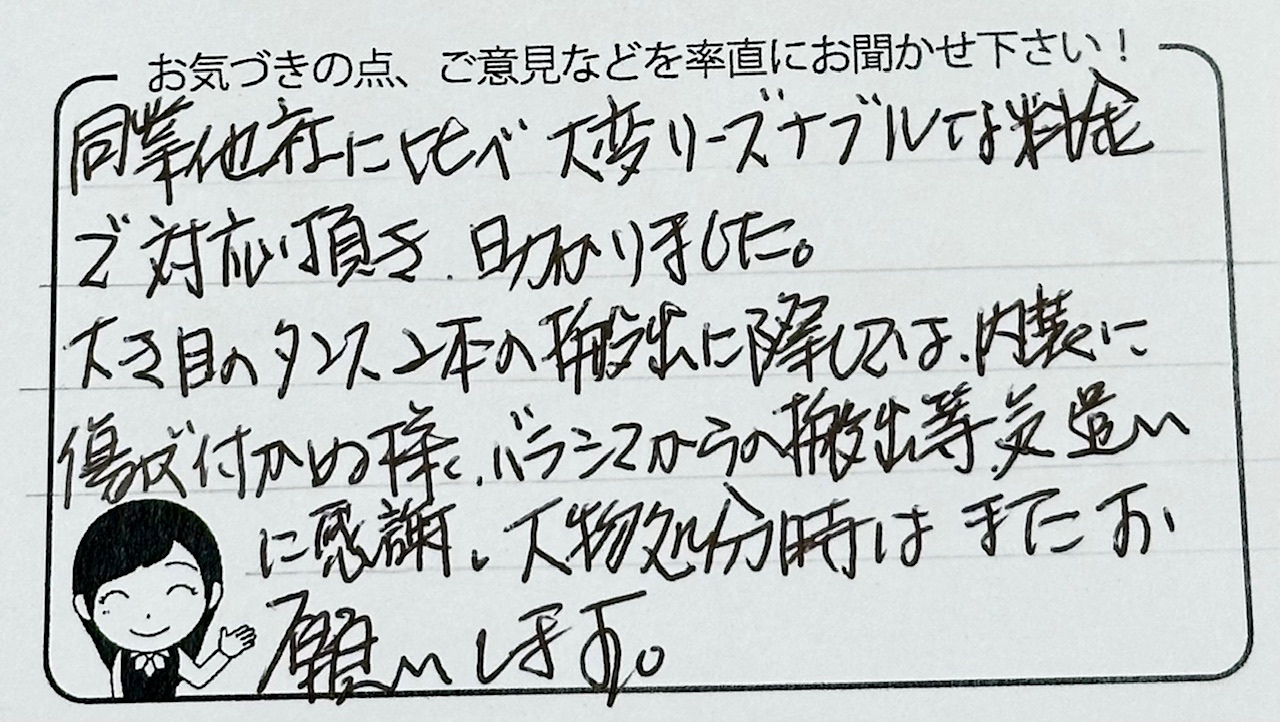 お気づきの点、ご意見などを率直にお聞かせ下さい！
同業他社に比べ大変リーズナブルな料金
で対応頂き、助かりました。
大き目のタンス2本の搬出に際しては、内装に
傷が付かぬ様、バラシてからの搬出等、気遣い
に感謝。大物処分時は またお
願いします。